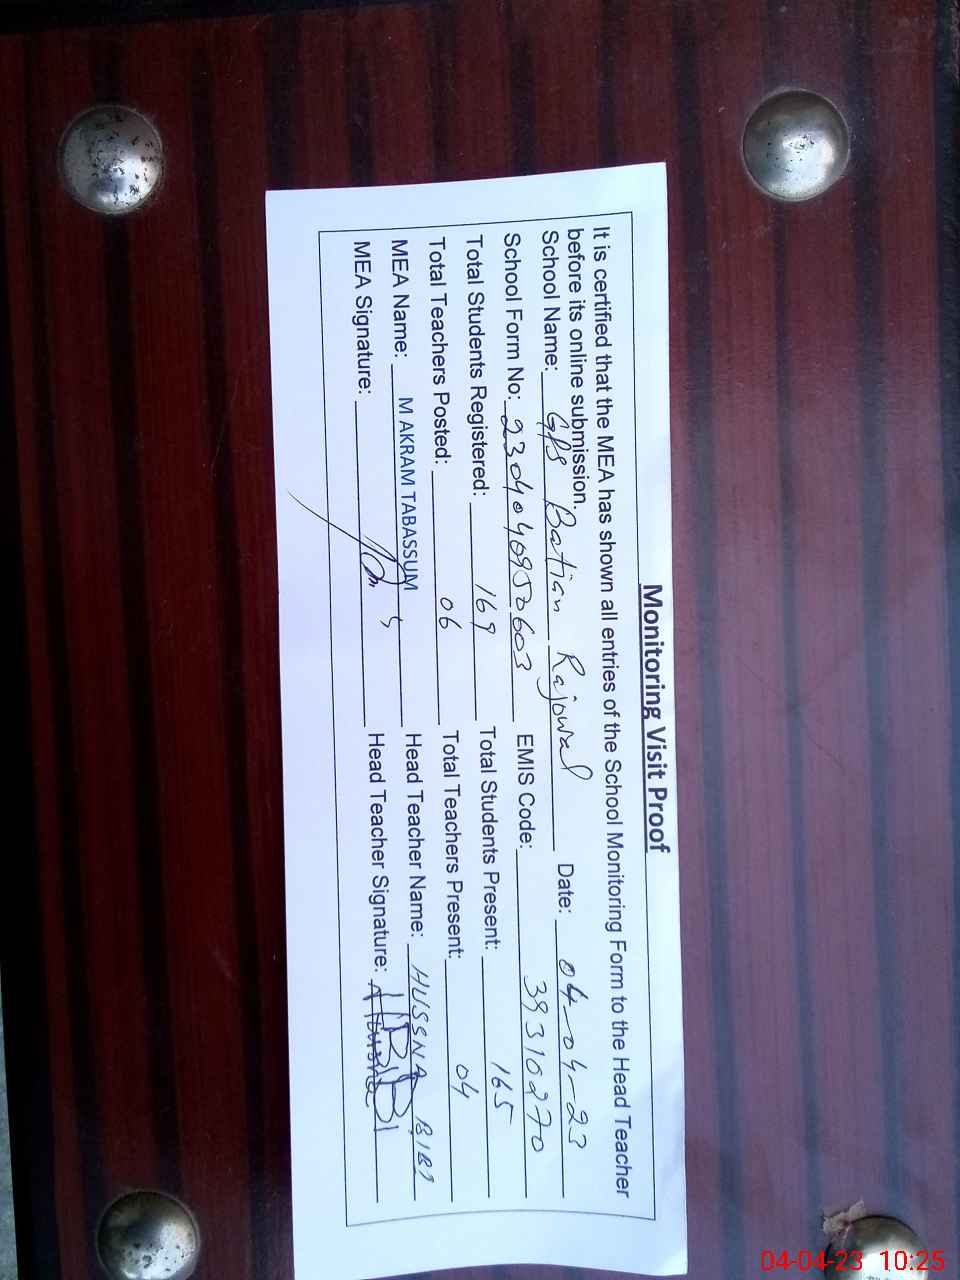 Monitoring Visit Proof
It is certified that the MEA has shown all entries of the School Monitoring Form to the Head Teacher
before its online submission.
School Name: GPS Batian Rajowal Date: 04-04-23
School Form No: 2304040950603 EMIS Code: 39310270
Total Students Registered: 169 Total Students Present: 165
Total Teachers Posted: 06 Total Teachers Present: 04
MEA Name: M AKRAM TABASSUM Head Teacher Name: HUSSNA BIBI
MEA Signature: Head Teacher Signature:
04-04-23 10:25